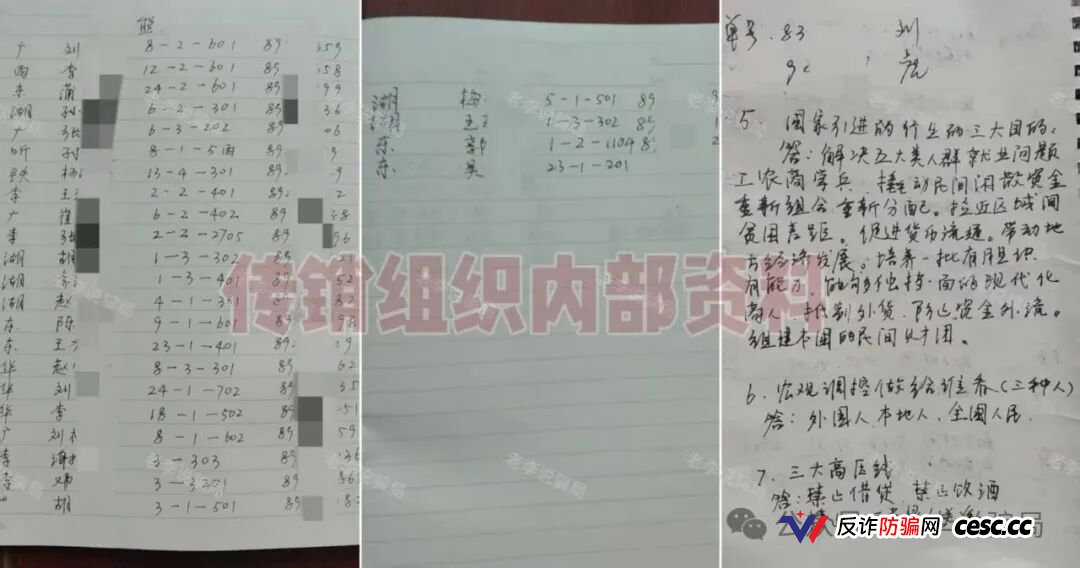 熊
广 刘 8-2-601 89
西 李 12-2-601 89 58
东 蒲 24-2-601 89 99
湖 孙 6-2-301 89 36
广 张 6-3-202 89 06
听 孙 8-1-5西 89 9
铁 杨 13-4-301 89 9
李 王 2-2-401 89 2
广 崔 6-2-402 89 38
李 张 2-2-2705 89 96
湖 胡 1-3-302 89 21
湖 1-3-401 89 52
湖 赵 4-1-301 89 82
东 陈 9-1-601 89
东 王 23-1-401 89 29
华 赵 8-3-301 89 62
华 刘 24-1-702 89 35
华 李 18-1-502 89 51
广 刘 8-1-602 89 59
李 谢 3-303 89 36
李 邓 3-3201 89 36
胡 3-1-501 89 182
湖 梅 5-1-501 89 9
王 1-3-302 89
东 郭 1-2-1104 8
东 吴 23-1-201
单号.83 刘
92
5. 国家引进的行业的三大目的:
答:解决五大类人群就业问题
工农商学兵 撬动民间闲散资金
重新组合 重新分配。拉近区域间
贫困差距。促进货币流通。带动地
方经济发展。培养一批有胆识
有能力 能够独挡一面的现代化
商人, 抵制外货,防止资金外流。
组建本国的民间财团。
6. 宏观调控做给谁看(三种人)
答:外国人.本地人.全国人民.
7. 三大高压线
答:禁止借贷 禁止饮酒
传销组织内部资料
老李说骗局
反诈防骗网 cesc.cc